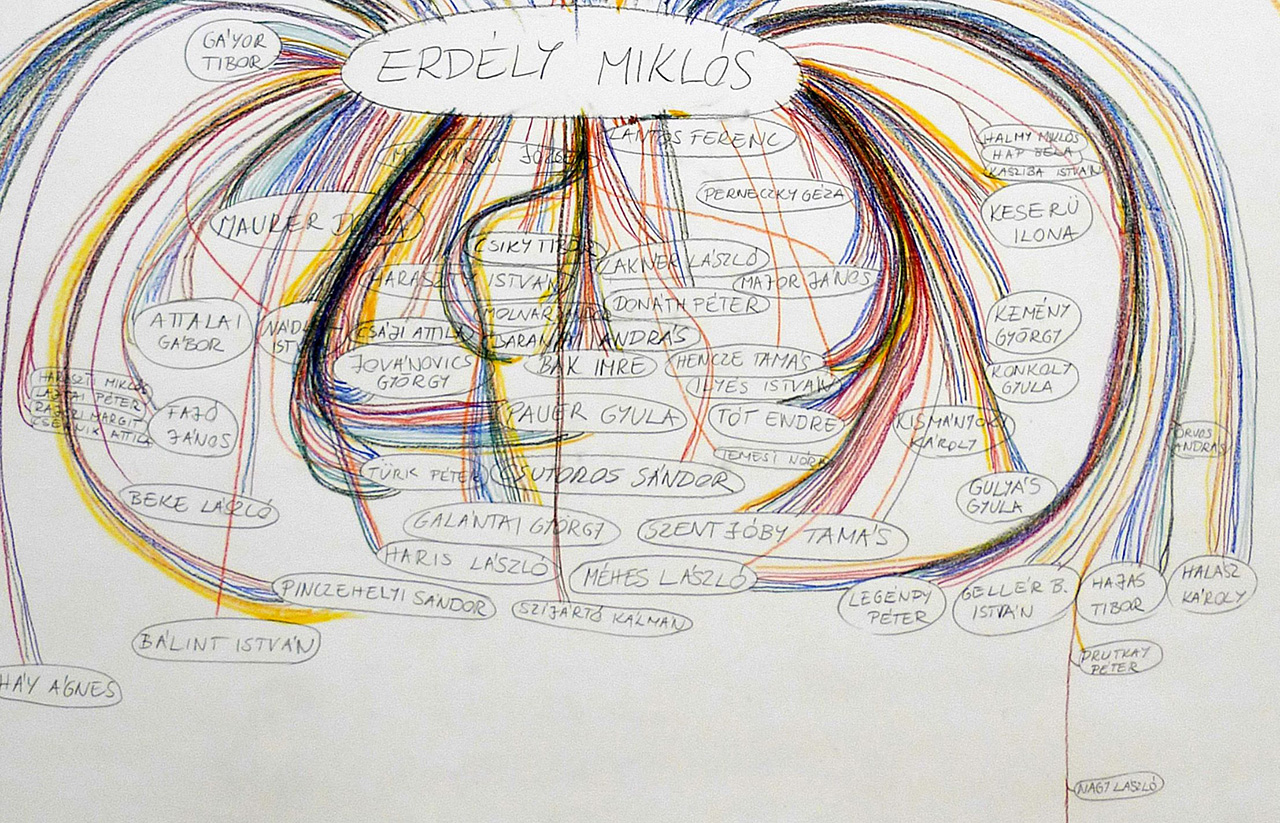 ERDÉLY MIKLÓS
GÁYOR
TIBOR
LANTOS FERENC
HALMY MIKLÓS
HAP BÉLA
KASZIBA ISTVÁN
PERNECZKY GÉZA
KESERÜ
ILONA
MAURER DÓRA
CSIKY TIBOR
LAKNER LÁSZLÓ
MAJOR JÁNOS
HARASZ
ISTVÁN
DONÁTH PÉTER
MOLNÁR
ATTALAI
GÁBOR
NÁDL
ISTV
CSÁJI ATTILA
BARANYAY ANDRÁS
KEMÉNY
GYÖRGY
JOVÁNOVICS
GYÖRGY
BAK IMRE
HENCZE TAMÁS
ILYÉS ISTVÁN
KONKOLY
GYULA
HARASZTI MIKLÓS
LAJTAI PÉTER
RAJCZI MARGIT
CSERNIK ATTILA
FAJÓ
JÁNOS
PAUER GYULA
TÓT ENDRE
KISMÁNYOKY
KÁROLY
ORVOS
ANDRÁS
TEMESI NÓRA
TÜRK PÉTER
CSUTOROS SÁNDOR
GULYÁS
GYULA
BEKE LÁSZLÓ
GALÁNTAI GYÖRGY
SZENTJÓBY TAMÁS
HARIS LÁSZLÓ
MÉHES LÁSZLÓ
PINCZEHELYI SÁNDOR
SZIJÁRTÓ KÁLMÁN
LEGÉNDY
PÉTER
GELLÉR B.
ISTVÁN
HAJAS
TIBOR
HALÁSZ
KÁROLY
BÁLINT ISTVÁN
PRUTKAY
PÉTER
HÁY ÁGNES
NAGY LÁSZLÓ